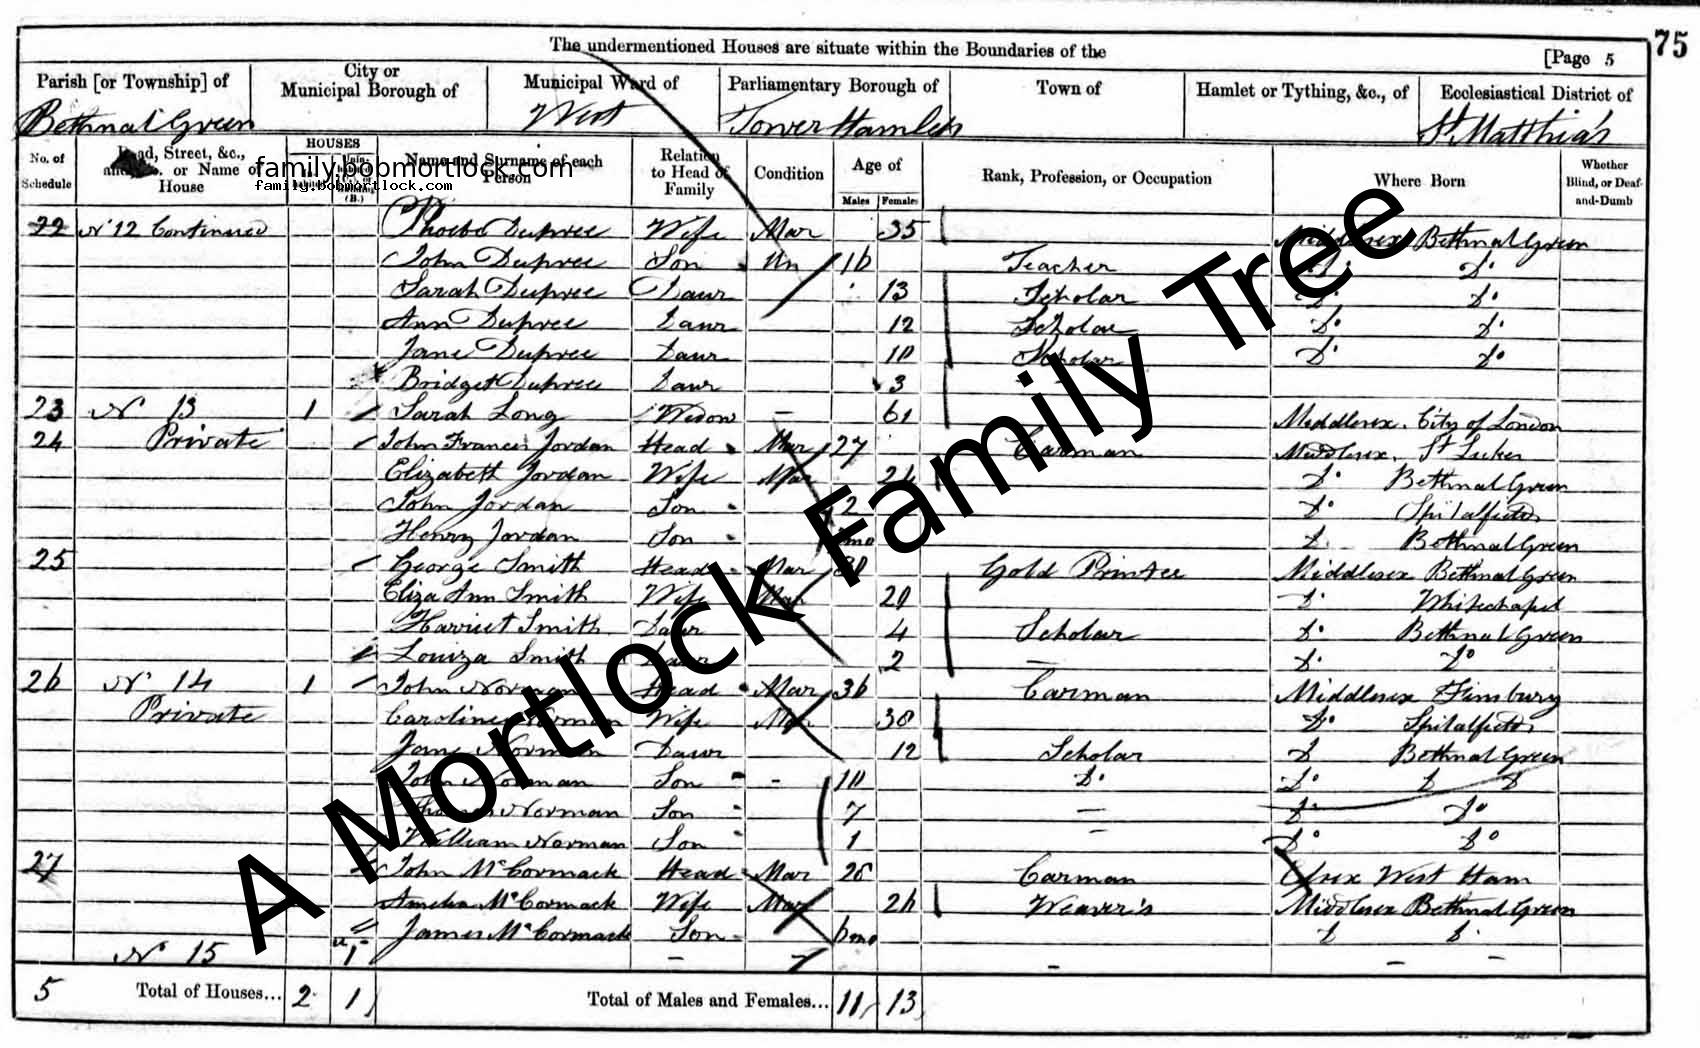 75
The undermentioned Houses are situate within the Boundaries of the [Page 5
Parish [or Township] of City or Municipal Borough of Municipal Ward of Parliamentary Borough of Town of Hamlet or Tything, &c., of Ecclesiastical District of
Bethnal Green West Tower Hamlets St Matthias
No. of Schedule Road, Street, &c., and No. or Name of House HOUSES Name and Surname of each Person Relation to Head of Family Condition Age of Males Females Rank, Profession, or Occupation Where Born Whether Blind, or Deaf-and-Dumb
family.bobmortlock.com
family.bobmortlock.com
22 No 12 Continued Phoebe Dupree Wife Mar 35 Middlesex Bethnal Green
John Dupree Son Un 16 Teacher Do Do
Sarah Dupree Daur 13 Scholar Do Do
Ann Dupree Daur 12 Scholar Do Do
Jane Dupree Daur 10 Scholar Do Do
Bridget Dupree Daur 3
23 No 13 1 Sarah Long Widow — 61 Middlesex City of London
24 Private John Francis Jordan Head Mar 27 Carman Middlesex St Lukes
Elizabeth Jordan Wife Mar 26 Do Bethnal Green
John Jordan Son 2 Do Spitalfields
Henry Jordan Son mo Do Bethnal Green
25 George Smith Head Mar 30 Gold Printer Middlesex Bethnal Green
Eliza Ann Smith Wife Mar 29 Do Whitechapel
Harriet Smith Daur 4 Scholar Do Bethnal Green
Louiza Smith Daur 2 — Do Do
26 No 14 1 John Norman Head Mar 36 Carman Middlesex Finsbury
Private Caroline Norman Wife Mar 38 Do Spitalfields
Jane Norman Daur 12 Scholar Do Bethnal Green
John Norman Son - 10 Do Do Do Do
Thomas Norman Son 7 — Do Do
William Norman Son 1 — Do Do
27 John McCormack Head Mar 26 Carman Essex West Ham
Amelia McCormack Wife Mar 26 Weaver's Middlesex Bethnal Green
James McCormack Son 6 mo Do Do
No 15 1 — — — — —
5 Total of Houses... 2 1 Total of Males and Females... 11 13
A Mortlock Family Tree